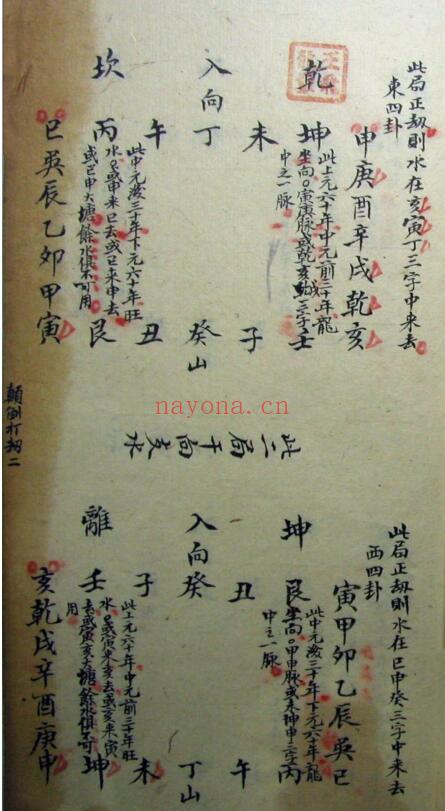 此局正劫則水在亥寅丁三字中來去
東四卦
申庚酉辛戌乾亥
乾
坤
此上元六十年中元前三十年龍
坐向○寅脉或乾亥三字
中之一脉
壬
未
子
入向丁
癸山
午
丑
坎
丙
此中元後三十年下元六十年旺
水○或申來巳去或巳來申去
或巳申大塘餘水俱不可用
艮
巳巽辰乙卯甲寅
顛倒打劫二
nayona.cn
此二局干向支水
此局正劫則水在巳申癸三字中來去
西四卦
寅甲卯乙辰巽巳
坤
艮
此中元後三十年下元六十年龍
坐向○甲申脉或未坤申三字
中之一脉
丙
丑
午
入向癸
丁山
子
未
離
壬
此上元六十年中元前三十年旺
水○或寅來亥去或亥來寅
去或寅亥大塘餘水俱不可
用
坤
亥乾戌辛酉庚申